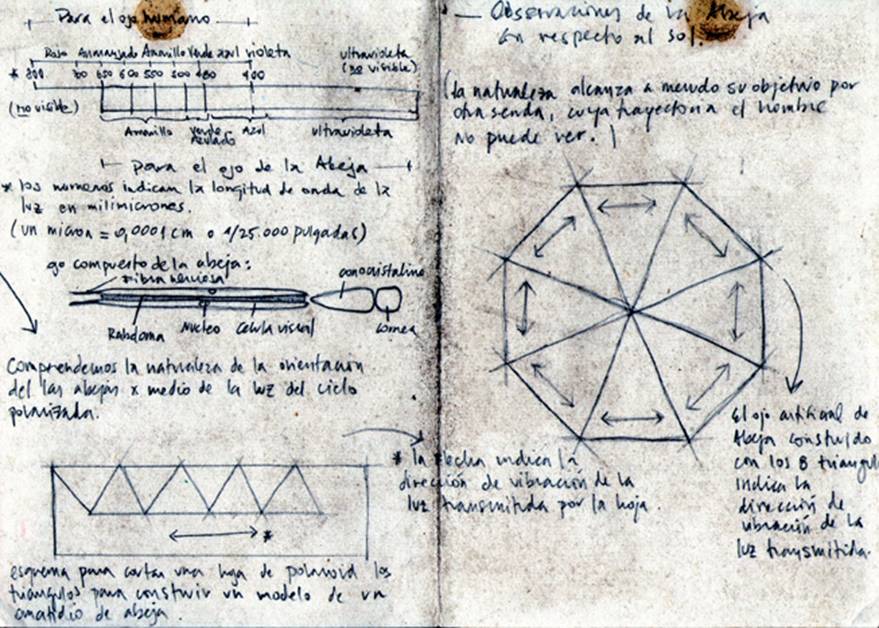 Para el ojo humano
Rojo Anaranjado Amarillo Verde azul violeta
ultravioleta
(no visible)
* 800 700 650 600 550 500 480 400
(no visible)
Amarillo verde azulado azul ultravioleta
Para el ojo de la Abeja
* los números indican la longitud de onda de la
luz en milimicrones.
(un micron = 0,0001 cm o 1/25.000 pulgadas)
ojo compuesto de la abeja:
fibra nerviosa
conocristalino
Rabdoma Nucleo Celula visual cornea
Comprendemos la naturaleza de la orientacion
del las abejas x medio de la luz del cielo
polarizada.
*
esquema para cortar una hoja de polaroid los
triangulos para construir un modelo de un
omatidio de abeja.
— Observaciones de la Abeja
en respecto al sol.
(la naturaleza alcanza a menudo su objetivo por
otra senda, cuya trayectoria el hombre
no puede ver.)
* la flecha indica la
dirección de vibración de la
luz transmitida por la hoja.
El ojo artificial de
Abeja construido
con los 8 triangul
indica la
dirección de
vibración de la
luz transmitida.